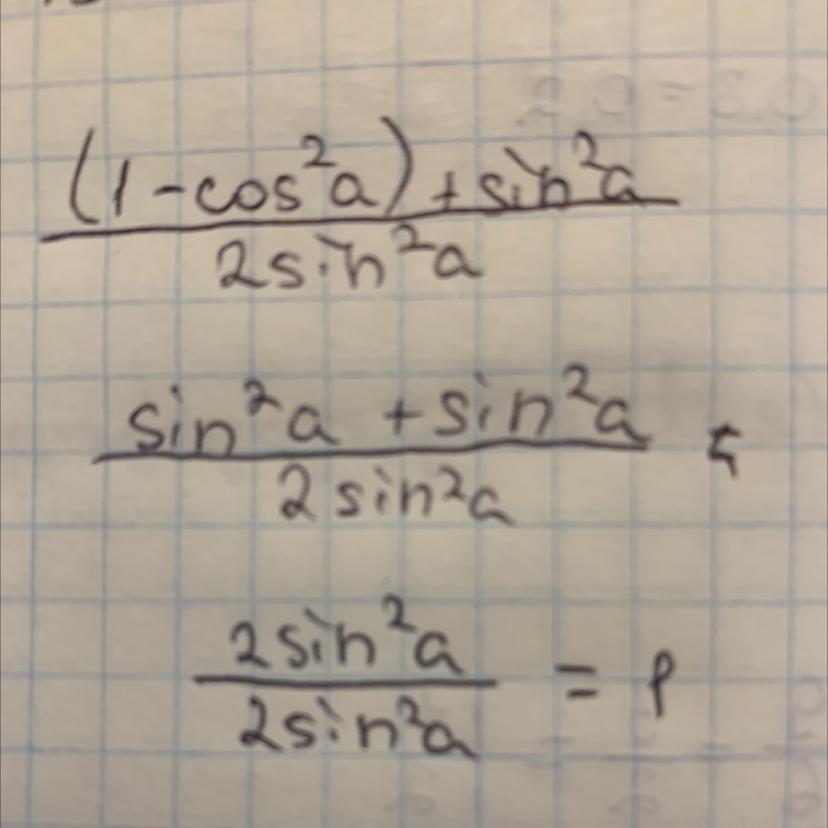 (1-cos²a)+sin²a
2sin²a
sin²a +sin²a
2sin²a
2sin²a
2sin²a
=